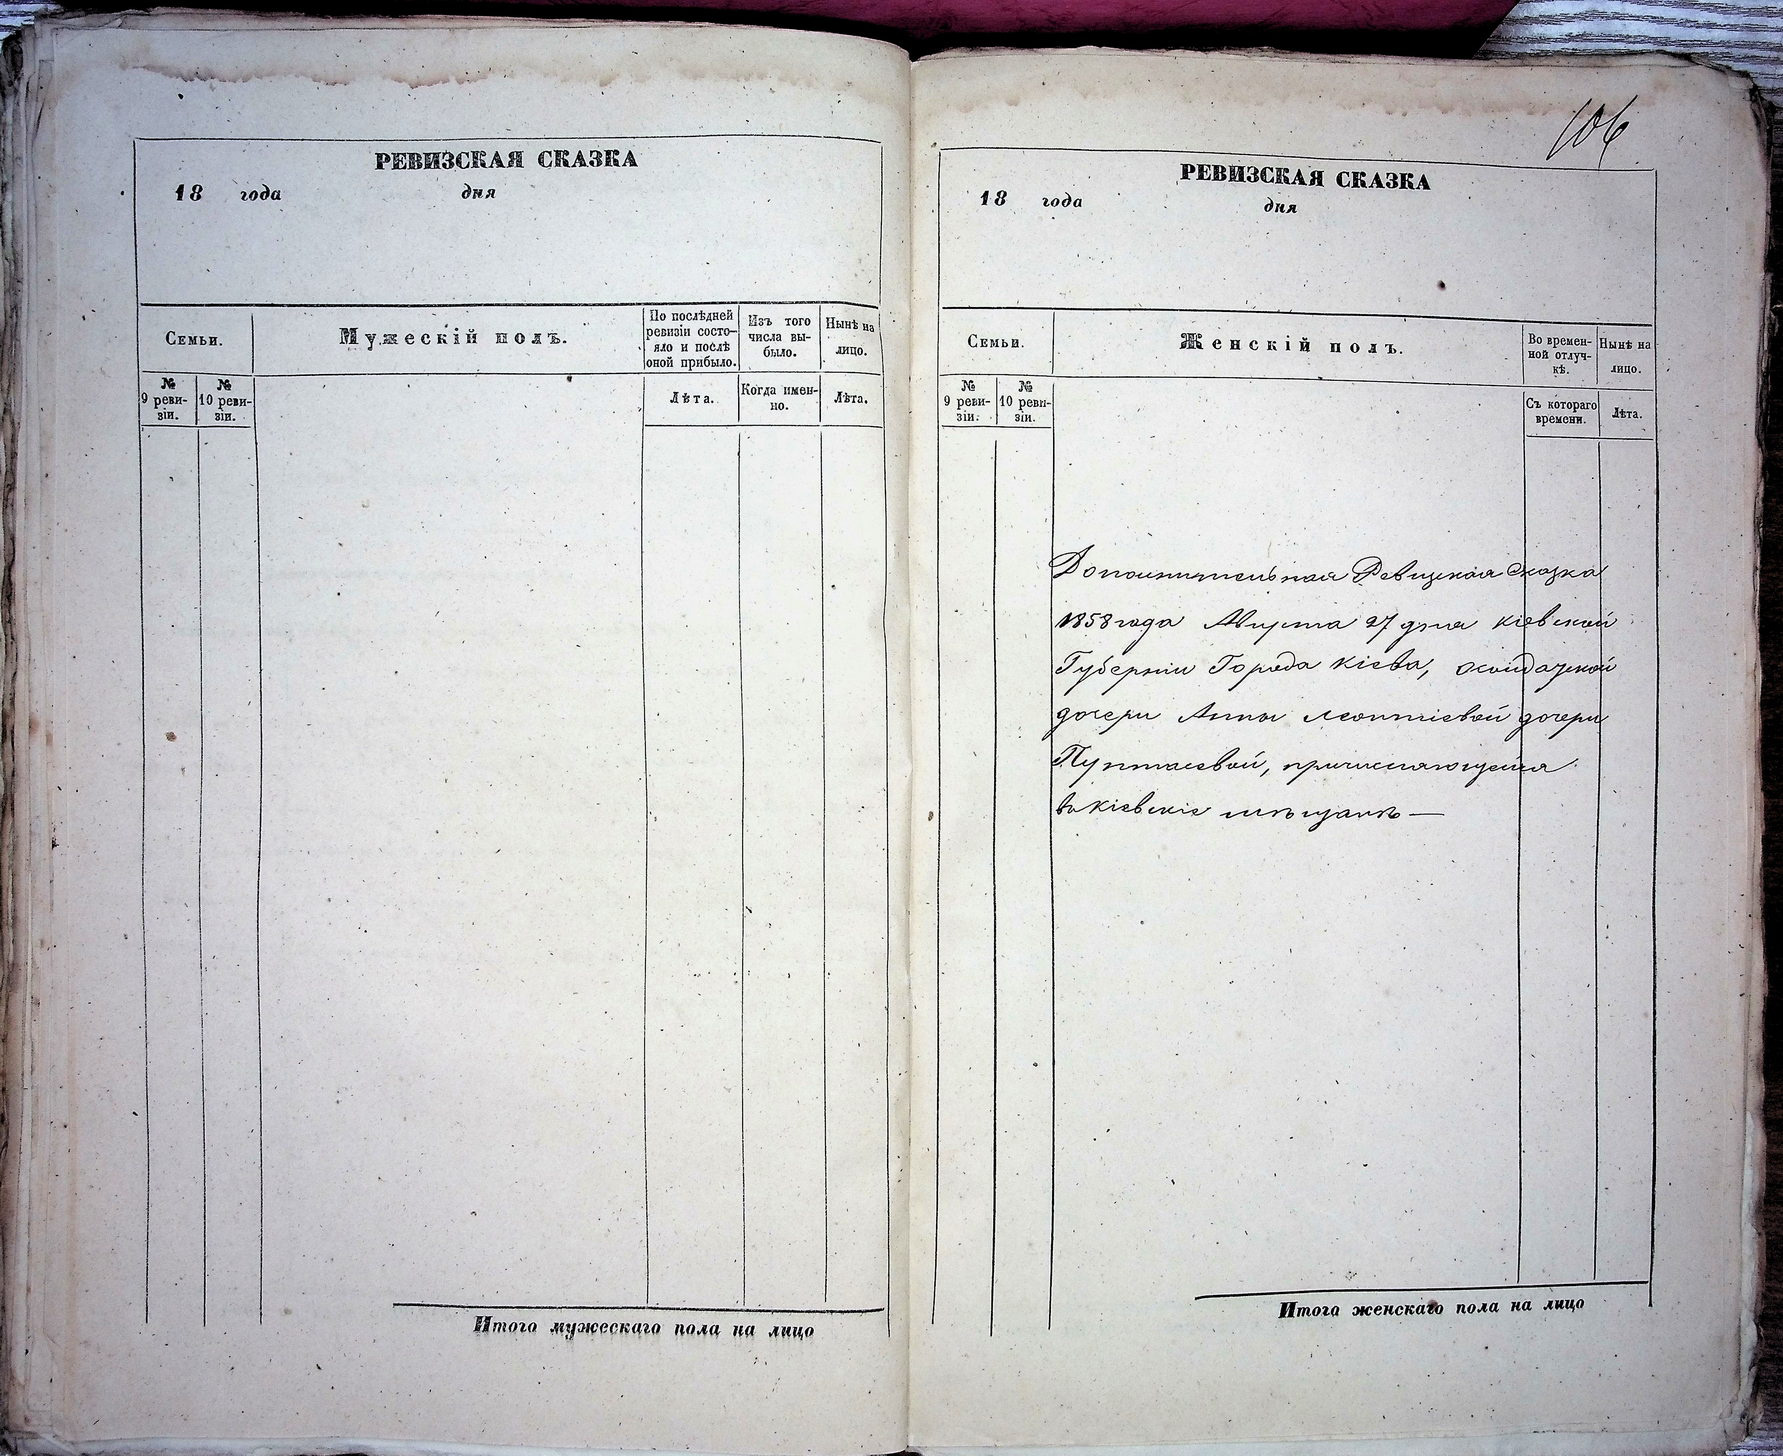 РЕВИЗСКАЯ СКАЗКА
18 года дня
Семьи.
Мужескій полъ.
По послѣдней ревизіи состо-
яло и послѣ оной прибыло.
Изъ того числа вы-
было.
Нынѣ на лицо.
№ 9 реви-
зіи.
№ 10 реви-
зіи.
Лѣта.
Когда имен-
но.
Лѣта.
Итого мужескаго пола на лицо
106
РЕВИЗСКАЯ СКАЗКА
18 года дня
Семьи.
Женскій полъ.
Во времен-
ной отлуч-
кѣ.
Нынѣ на лицо.
№ 9 реви-
зіи.
№ 10 реви-
зіи.
Съ котораго времени.
Лѣта.
Дополнительная Ревизская Сказка
1858 года Августа 27 дня Кіевской
Губерніи Города Кіева,
дочери Анны Леонтіевой дочери
причисляющейся
въ Кіевскіе мѣщанѣ —
Итого женскаго пола на лицо